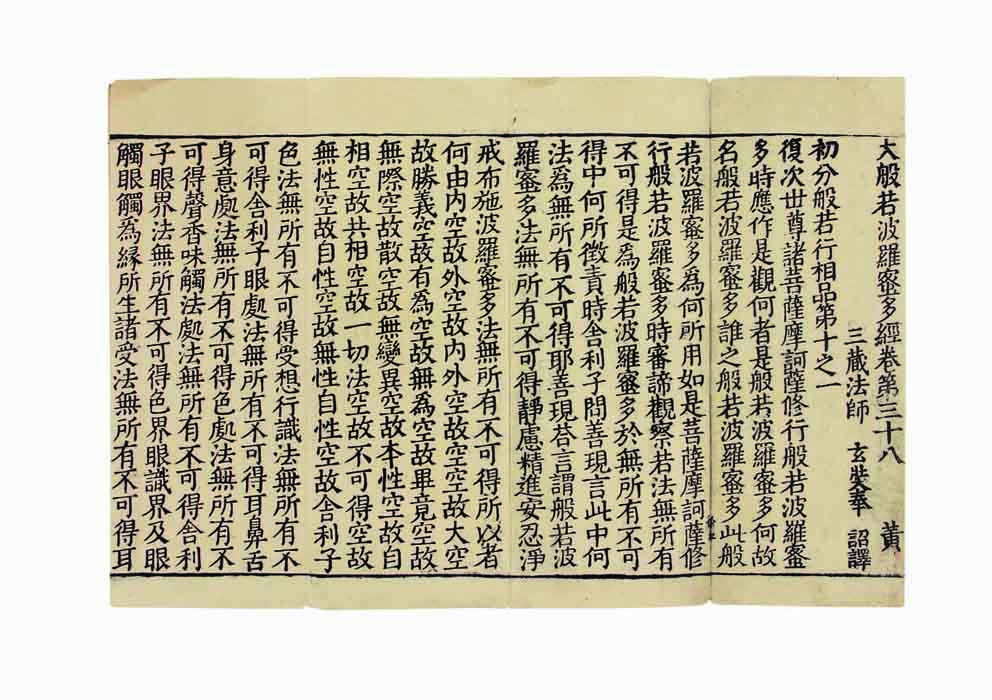 大般若波羅蜜多經卷第三十八 黃
三藏法師 玄奘奉 詔譯
初分般若行相品第十之一
復次世尊諸菩薩摩訶薩修行般若波羅蜜
多時應作是觀何者是般若波羅蜜多何故
名般若波羅蜜多誰之般若波羅蜜多此般
若波羅蜜多爲何所用如是菩薩摩訶薩修
行般若波羅蜜多時審諦觀察若法無所有
不可得是爲般若波羅蜜多於無所有不可
得中何所徵責時舍利子問善現言此中何
法爲無所有不可得耶善現荅言謂般若波
羅蜜多法無所有不可得靜慮精進安忍淨
戒布施波羅蜜多法無所有不可得所以者
何由内空故外空故内外空故空空故大空
故勝義空故有爲空故無爲空故畢竟空故
無際空故散空故無變異空故本性空故自
相空故共相空故一切法空故不可得空故
無性空故自性空故無性自性空故舍利子
色法無所有不可得受想行識法無所有不
可得舍利子眼處法無所有不可得耳鼻舌
身意處法無所有不可得色處法無所有不
可得聲香味觸法處法無所有不可得舍利
子眼界法無所有不可得色界眼識界及眼
觸眼觸爲緣所生諸受法無所有不可得耳